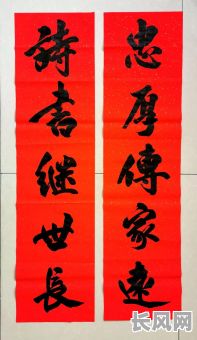 忠厚傳家遠
詩書继世長
长风网